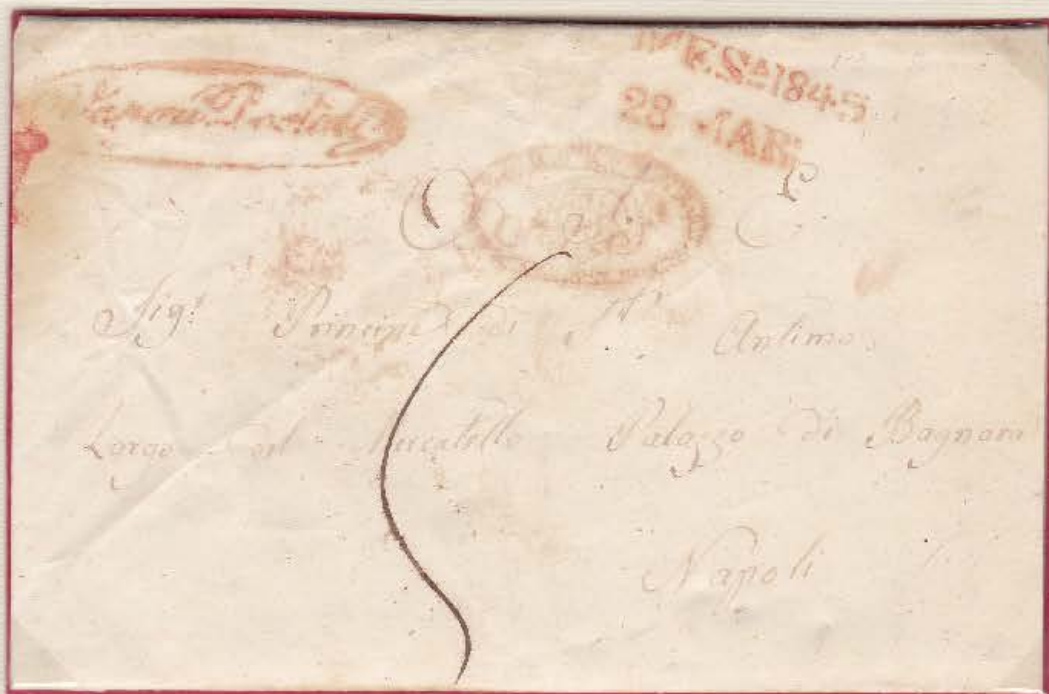 Vapori Postali
MES.A 1845
28 JAN.
Sig.r Principe di S. Antimo
Largo del Mercatello Palazzo di Bagnara
Napoli